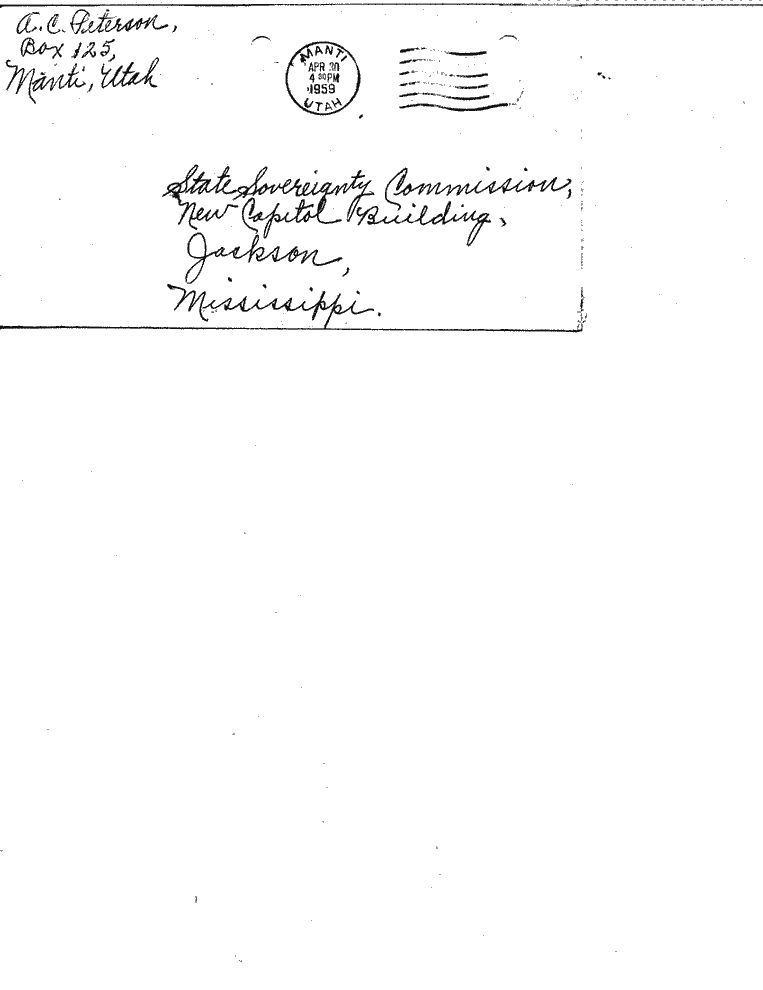 A. C. Peterson,
Box 125,
Manti, Utah
MANTI
APR 30
4 30 PM
1959
UTAH
State Sovereignty Commission,
New Capitol Building,
Jackson,
Mississippi.